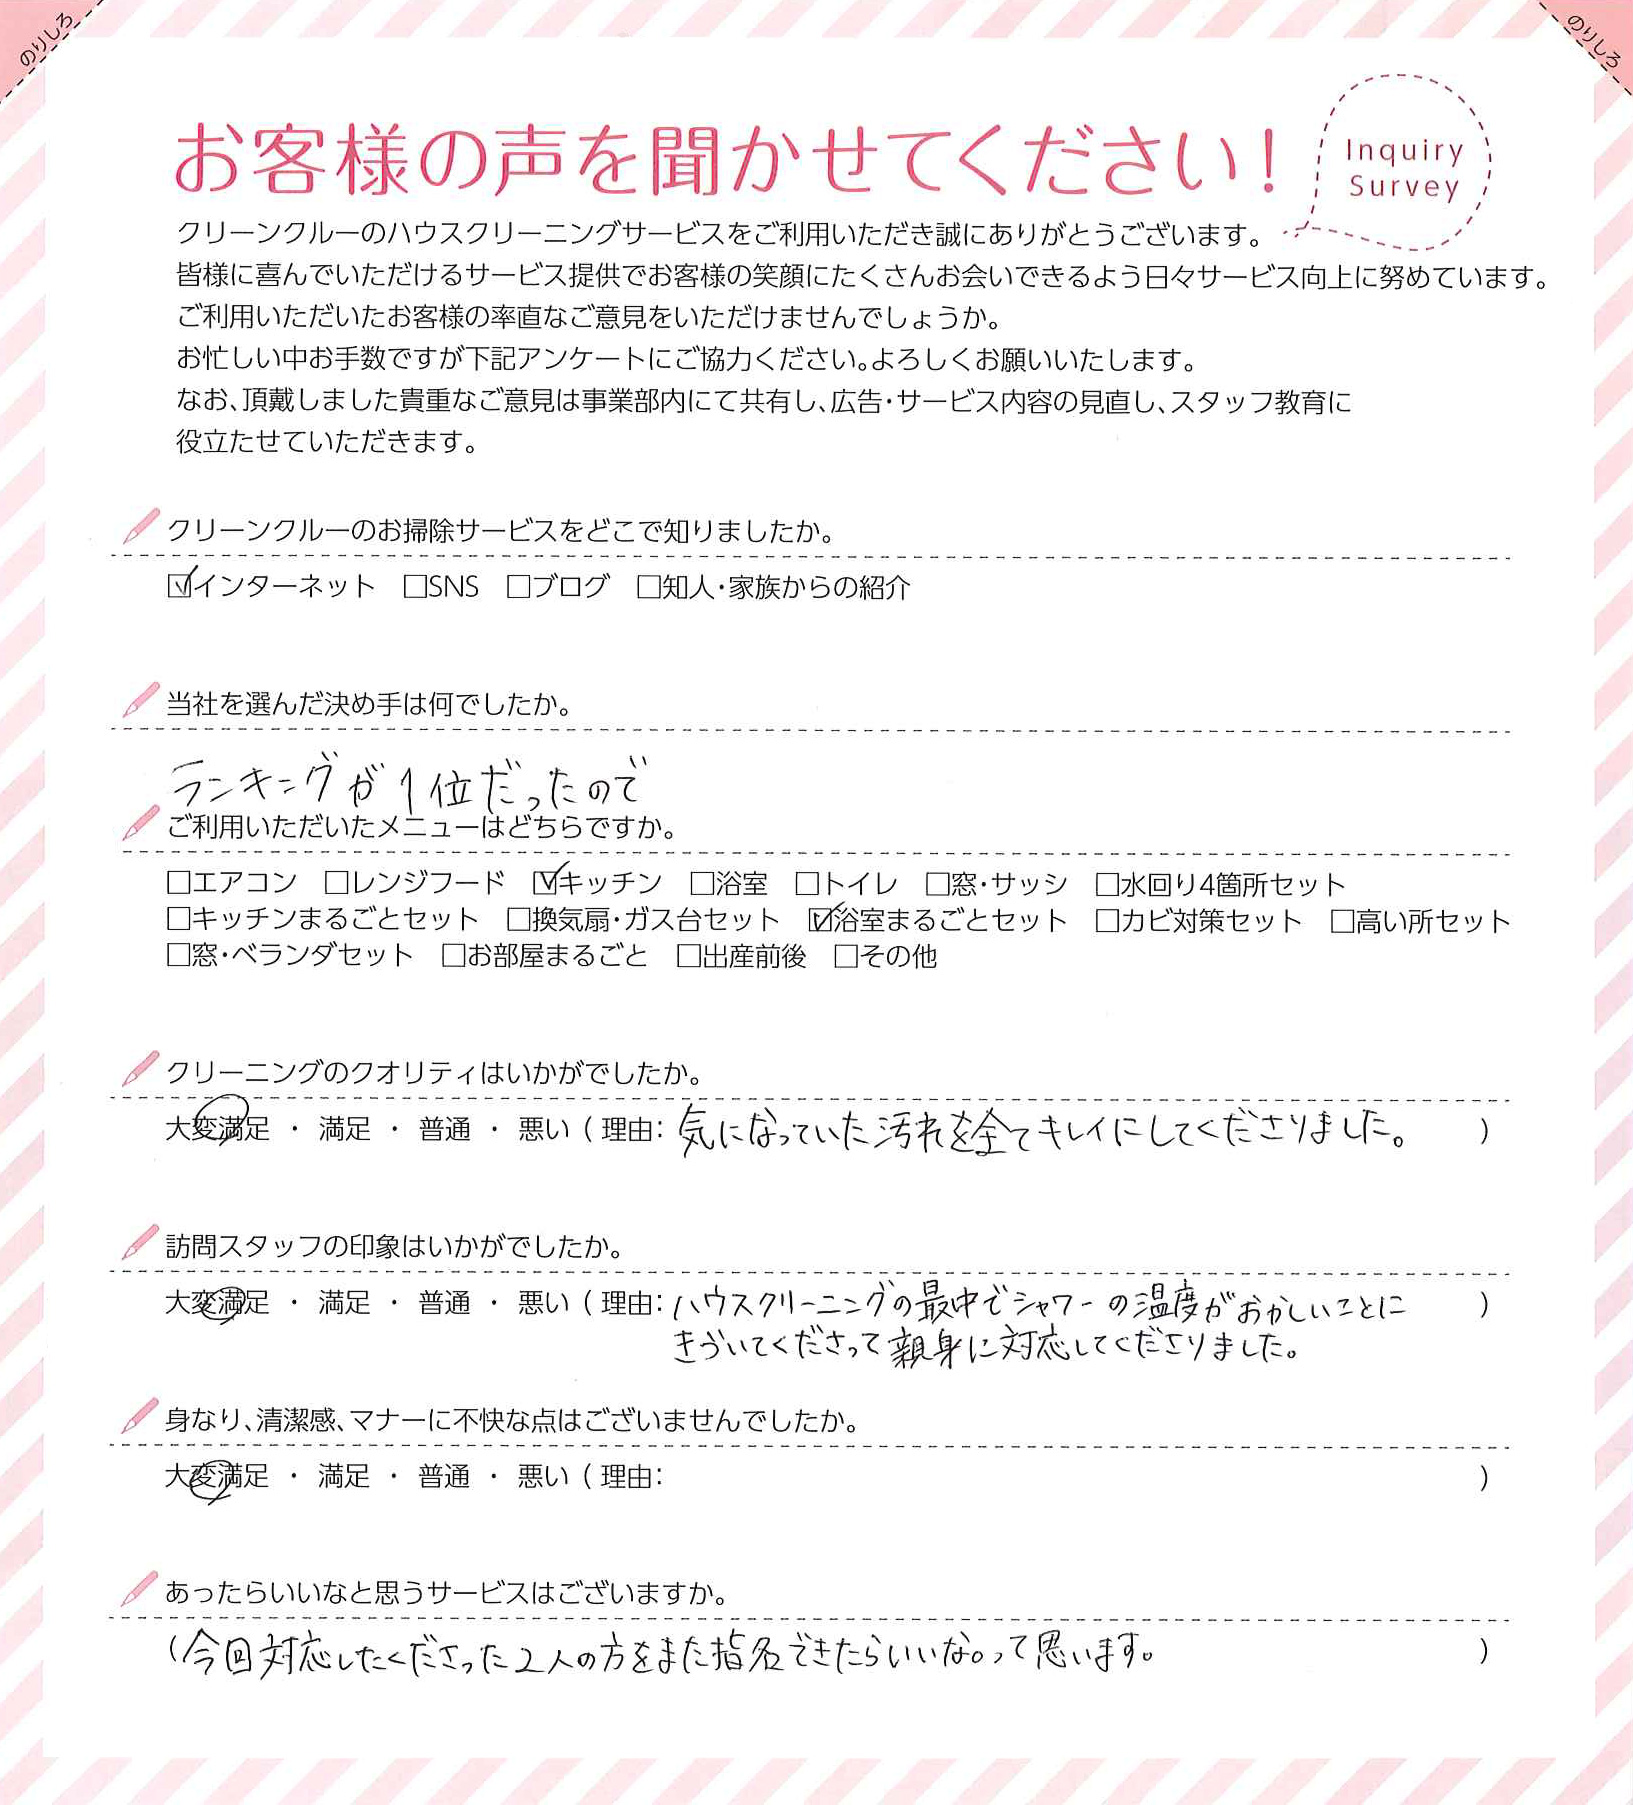 のりしろ
のりしろ
お客様の声を聞かせてください!
Inquiry
Survey
クリーンクルーのハウスクリーニングサービスをご利用いただき誠にありがとうございます。
皆様に喜んでいただけるサービス提供でお客様の笑顔にたくさんお会いできるよう日々サービス向上に努めています。
ご利用いただいたお客様の率直なご意見をいただけませんでしょうか。
お忙しい中お手数ですが下記アンケートにご協力ください。よろしくお願いいたします。
なお、頂戴しました貴重なご意見は事業部内にて共有し、広告・サービス内容の見直し、スタッフ教育に
役立たせていただきます。
クリーンクルーのお掃除サービスをどこで知りましたか。
☑インターネット □SNS □ブログ □知人・家族からの紹介
当社を選んだ決め手は何でしたか。
ランキングが1位だったので
ご利用いただいたメニューはどちらですか。
□エアコン □レンジフード ☑キッチン □浴室 □トイレ □窓・サッシ □水回り4箇所セット
□キッチンまるごとセット □換気扇・ガス台セット ☑浴室まるごとセット □カビ対策セット □高い所セット
□窓・ベランダセット □お部屋まるごと □出産前後 □その他
クリーニングのクオリティはいかがでしたか。
大変満足 ・ 満足 ・ 普通 ・ 悪い ( 理由: 気になっていた汚れを全てキレイにしてくださりました。 )
訪問スタッフの印象はいかがでしたか。
大変満足 ・ 満足 ・ 普通 ・ 悪い ( 理由: ハウスクリーニングの最中でシャワーの温度がおかしいことに )
きづいてくださって親身に対応してくださりました。
身なり、清潔感、マナーに不快な点はございませんでしたか。
大変満足 ・ 満足 ・ 普通 ・ 悪い ( 理由: )
あったらいいなと思うサービスはございますか。
(今回対応したくださった2人の方をまた指名できたらいいな。って思います。 )